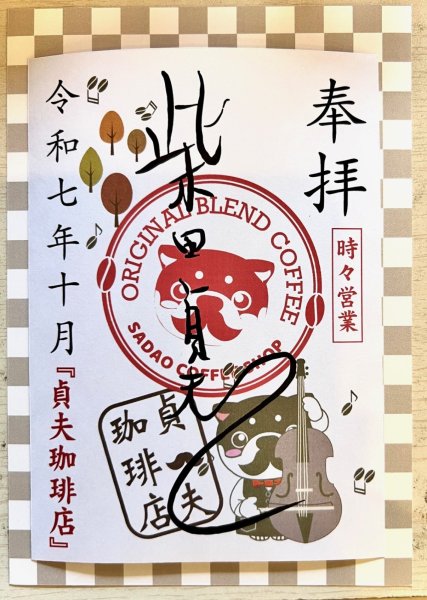 奉拝
時々営業
柴田貞夫
ORIGINAL BLEND COFFEE
SADAO COFFEE SHOP
貞夫
珈琲店
令和七年十月
『貞夫珈琲店』